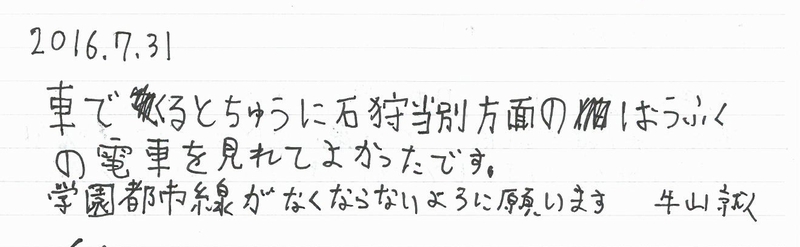 2016.7.31
車でくるとちゅうに石狩当別方面のほうふく
の電車を見れてよかったです。
学園都市線がなくならないように願います 牛山